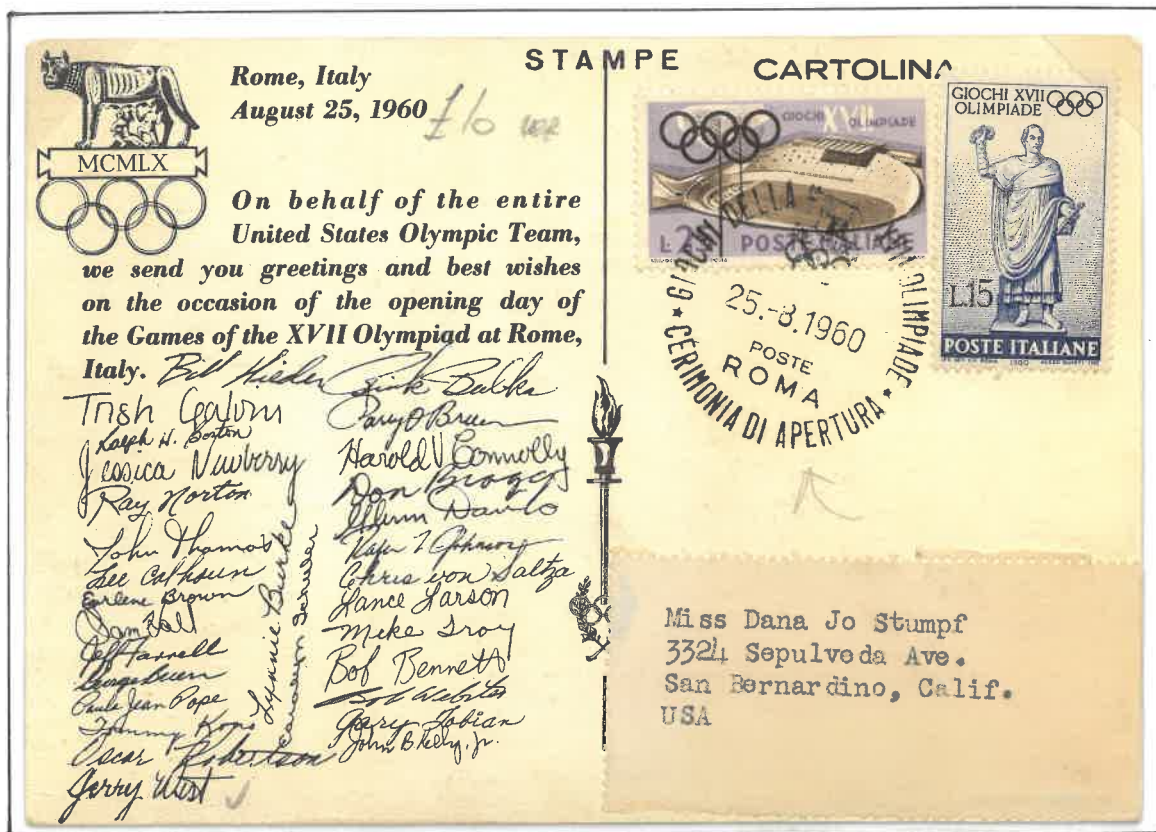 STAMPE
CARTOLINA
MCMLX
Rome, Italy
August 25, 1960
£10
On behalf of the entire
United States Olympic Team,
we send you greetings and best wishes
on the occasion of the opening day of
the Games of the XVII Olympiad at Rome,
Italy.
Bill Nieder
Rink Babka
Trish Galvin
Ralph H. Boston
Jessica Newberry
Ray Norton
John Thomas
Lee Calhoun
Earlene Brown
Sam Hall
Jeff Farrell
George Breen
Paula Jean Pope
Tommy Kono
Oscar Robertson
Jerry West
Lynnie Burke
Parry O'Brien
Harold V Connolly
Don Bragg
Glenn Davis
Rafer L Johnson
Chris von Saltza
Lance Larson
Mike Troy
Bob Bennett
Bob Webster
Gary Tobian
John B Kelly, Jr.
GIOCHI XVII OLIMPIADE
L. 25
POSTE ITALIANE
GIOCHI XVII
OLIMPIADE
L.15
POSTE ITALIANE
1960
GIOCHI DELLA OLIMPIADE
25.-8.1960
POSTE
ROMA
CERIMONIA DI APERTURA
Miss Dana Jo Stumpf
3324 Sepulveda Ave.
San Bernardino, Calif.
USA